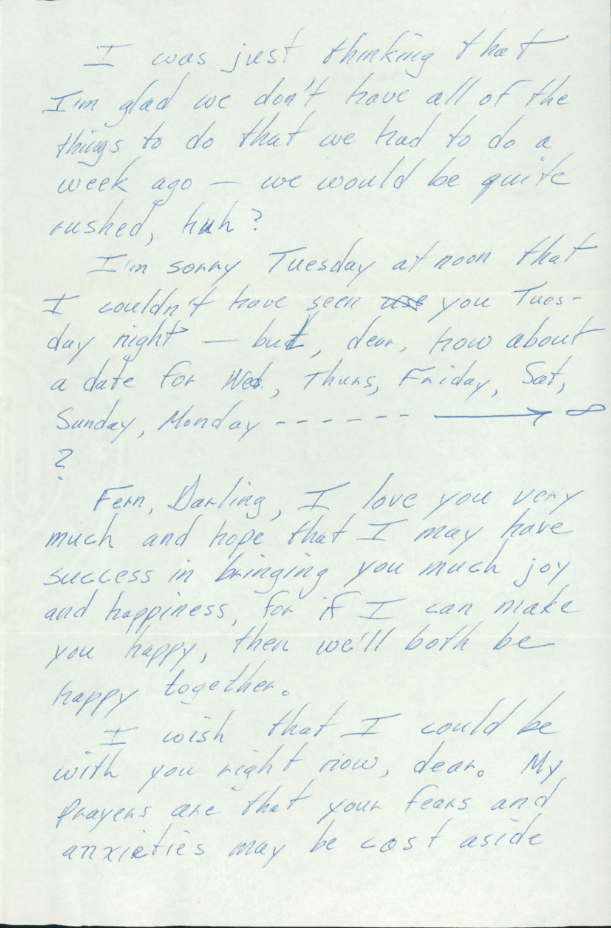 I was just thinking that
I'm glad we don't have all of the
things to do that we had to do a
week ago — we would be quite
rushed, huh?
I'm sorry Tuesday at noon that
I couldn't have seen use you Tues-
day night — but, dear, how about
a date for Wed, Thurs, Friday, Sat,
Sunday, Monday ------ ⟶ ∞
?
Fern, Darling, I love you very
much and hope that I may have
success in bringing you much joy
and happiness, for if I can make
you happy, then we'll both be
happy together.
I wish that I could be
with you right now, dear. My
prayers are that your fears and
anxieties may be cast aside